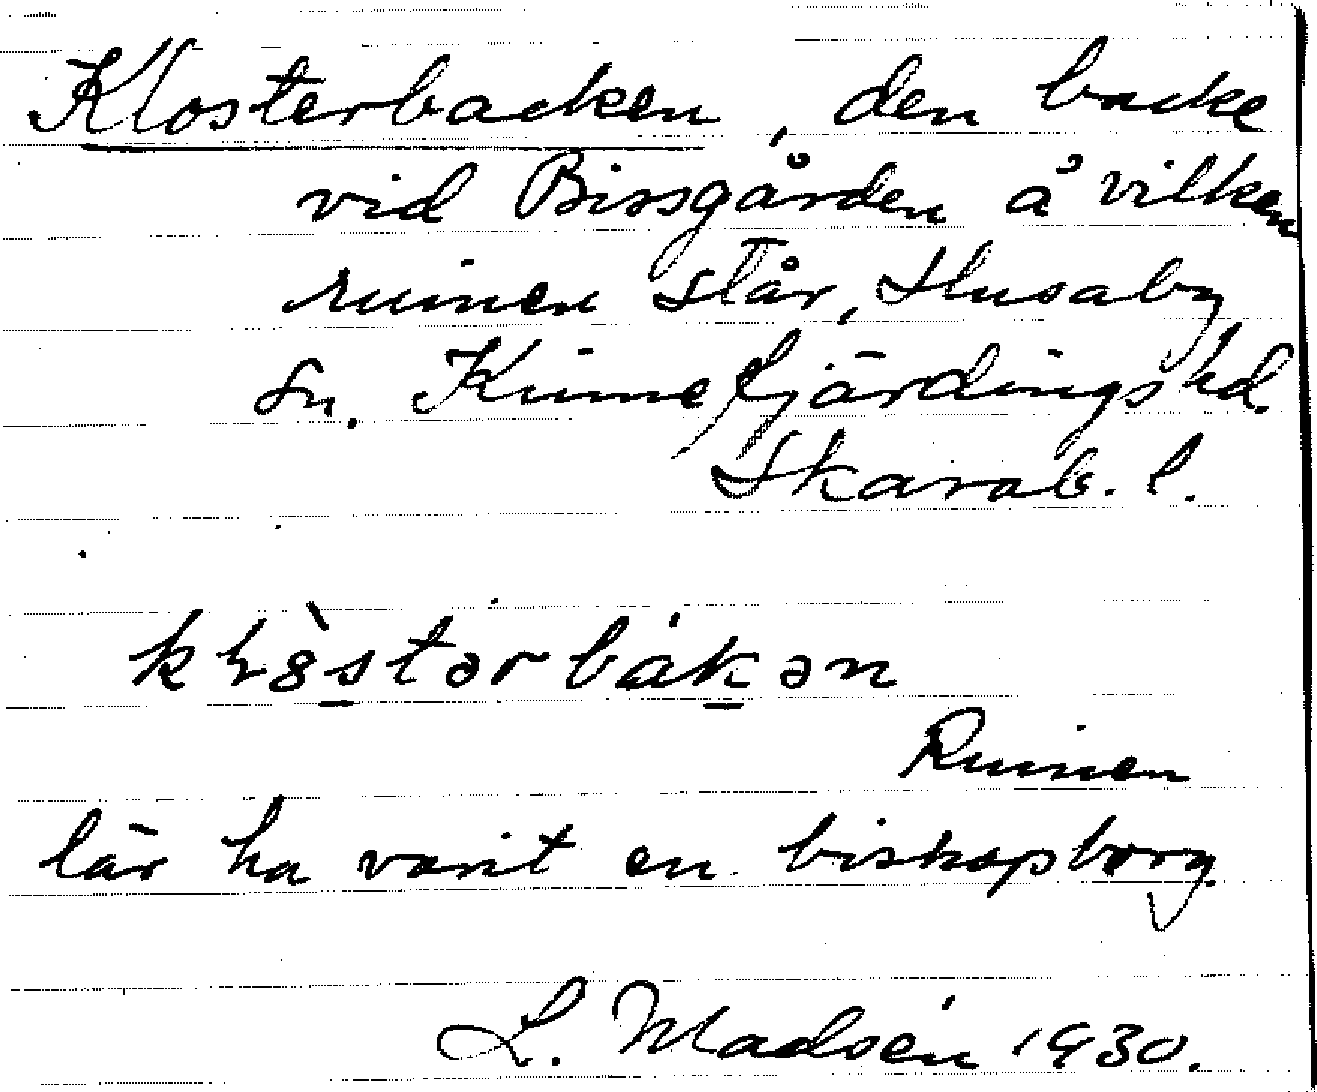 Klosterbacken, den backe
vid Bissgården å vilken
ruinen står, Husaby
sn. Kinnefjärdings hd.
Skarab. l.
Ruinen
lär ha varit en biskopborg.
L. Madsén 1930.